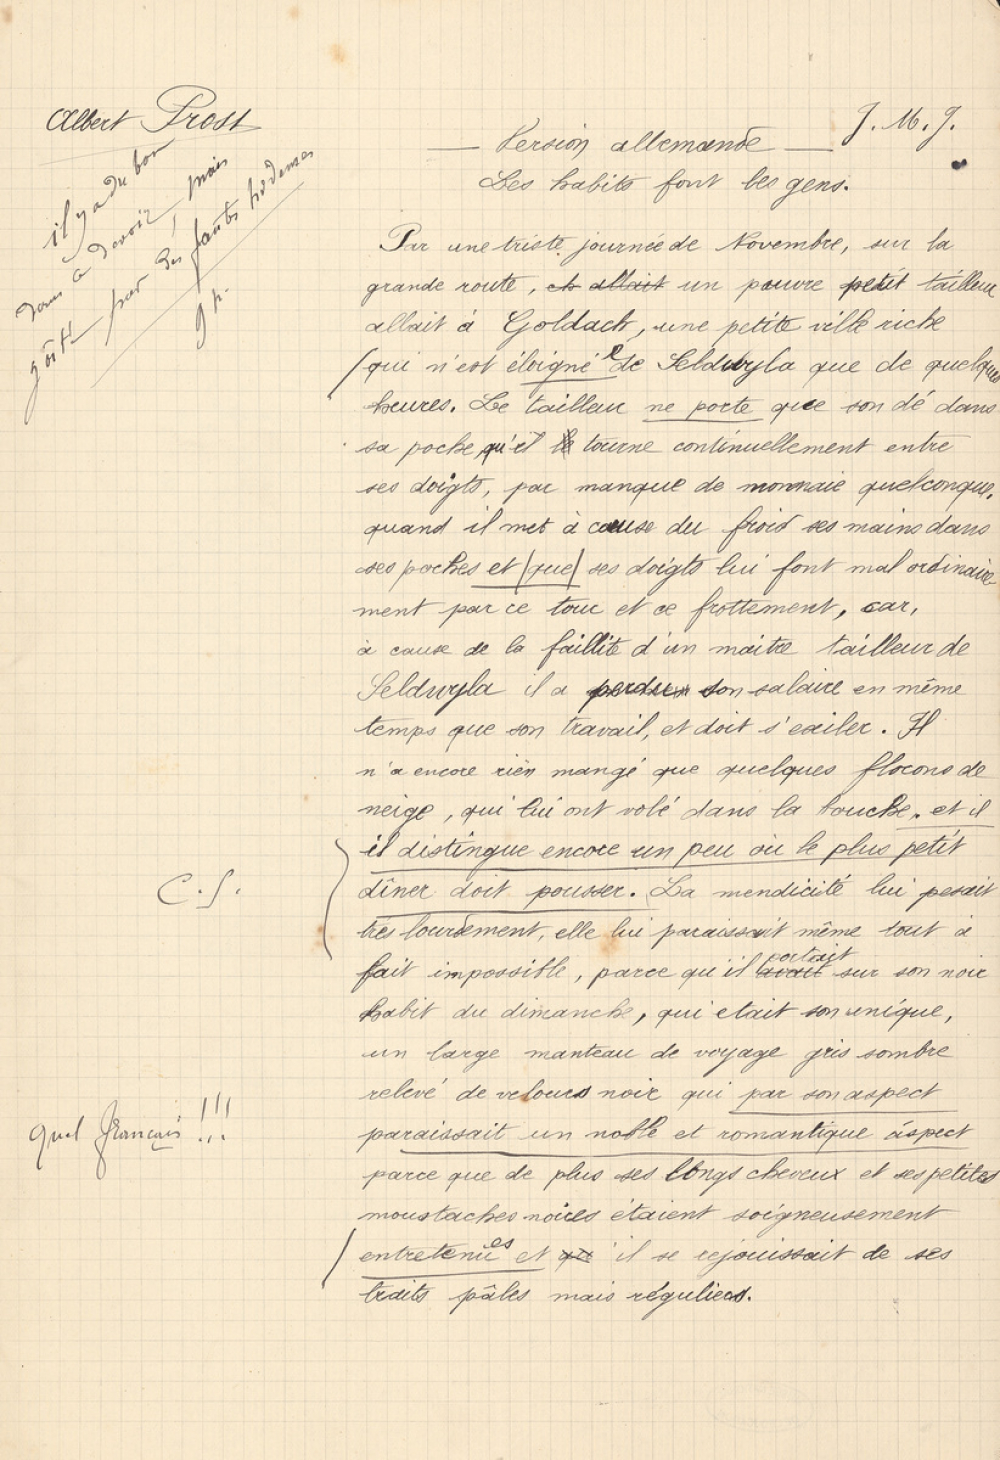 Albert Prost
J. M. J.
il y a du bon
dans ce devoir, mais
gâté par des fautes
g p.
— Version allemande —
Les habits font les gens.
Par une triste journée de Novembre, sur la
grande route, un pauvre petit tailleur
allait à Goldach, une petite ville riche
qui n'est éloignée de Seldwyla que de quelques
heures. Le tailleur ne porte que son dé dans
sa poche, qu'il tourne continuellement entre
ses doigts, par manque de monnaie quelconque,
quand il met à cause du froid ses mains dans
ses poches et (que) ses doigts lui font mal ordinaire-
ment par ce tour et ce frottement, car,
à cause de la faillite d'un maître tailleur de
Seldwyla il a perdu son salaire en même
temps que son travail, et doit s'exiler. Il
n'a encore rien mangé que quelques flocons de
neige, qui lui ont volé dans la bouche, et il
il distingue encore un peu où le plus petit
dîner doit pousser. La mendicité lui pesait
C.S.
très lourdement, elle lui paraissait même tout à
fait impossible, parce qu'il avait portait sur son noir
habit du dimanche, qui etait son unique,
un large manteau de voyage gris sombre
relevé de velours noir qui par son aspect
quel français !!!
paraissait un noble et romantique aspect
parce que de plus ses longs cheveux et ses petites
moustaches noires étaient soigneusement
entretenues et il se rejouissait de ses
traits pâles mais réguliers.